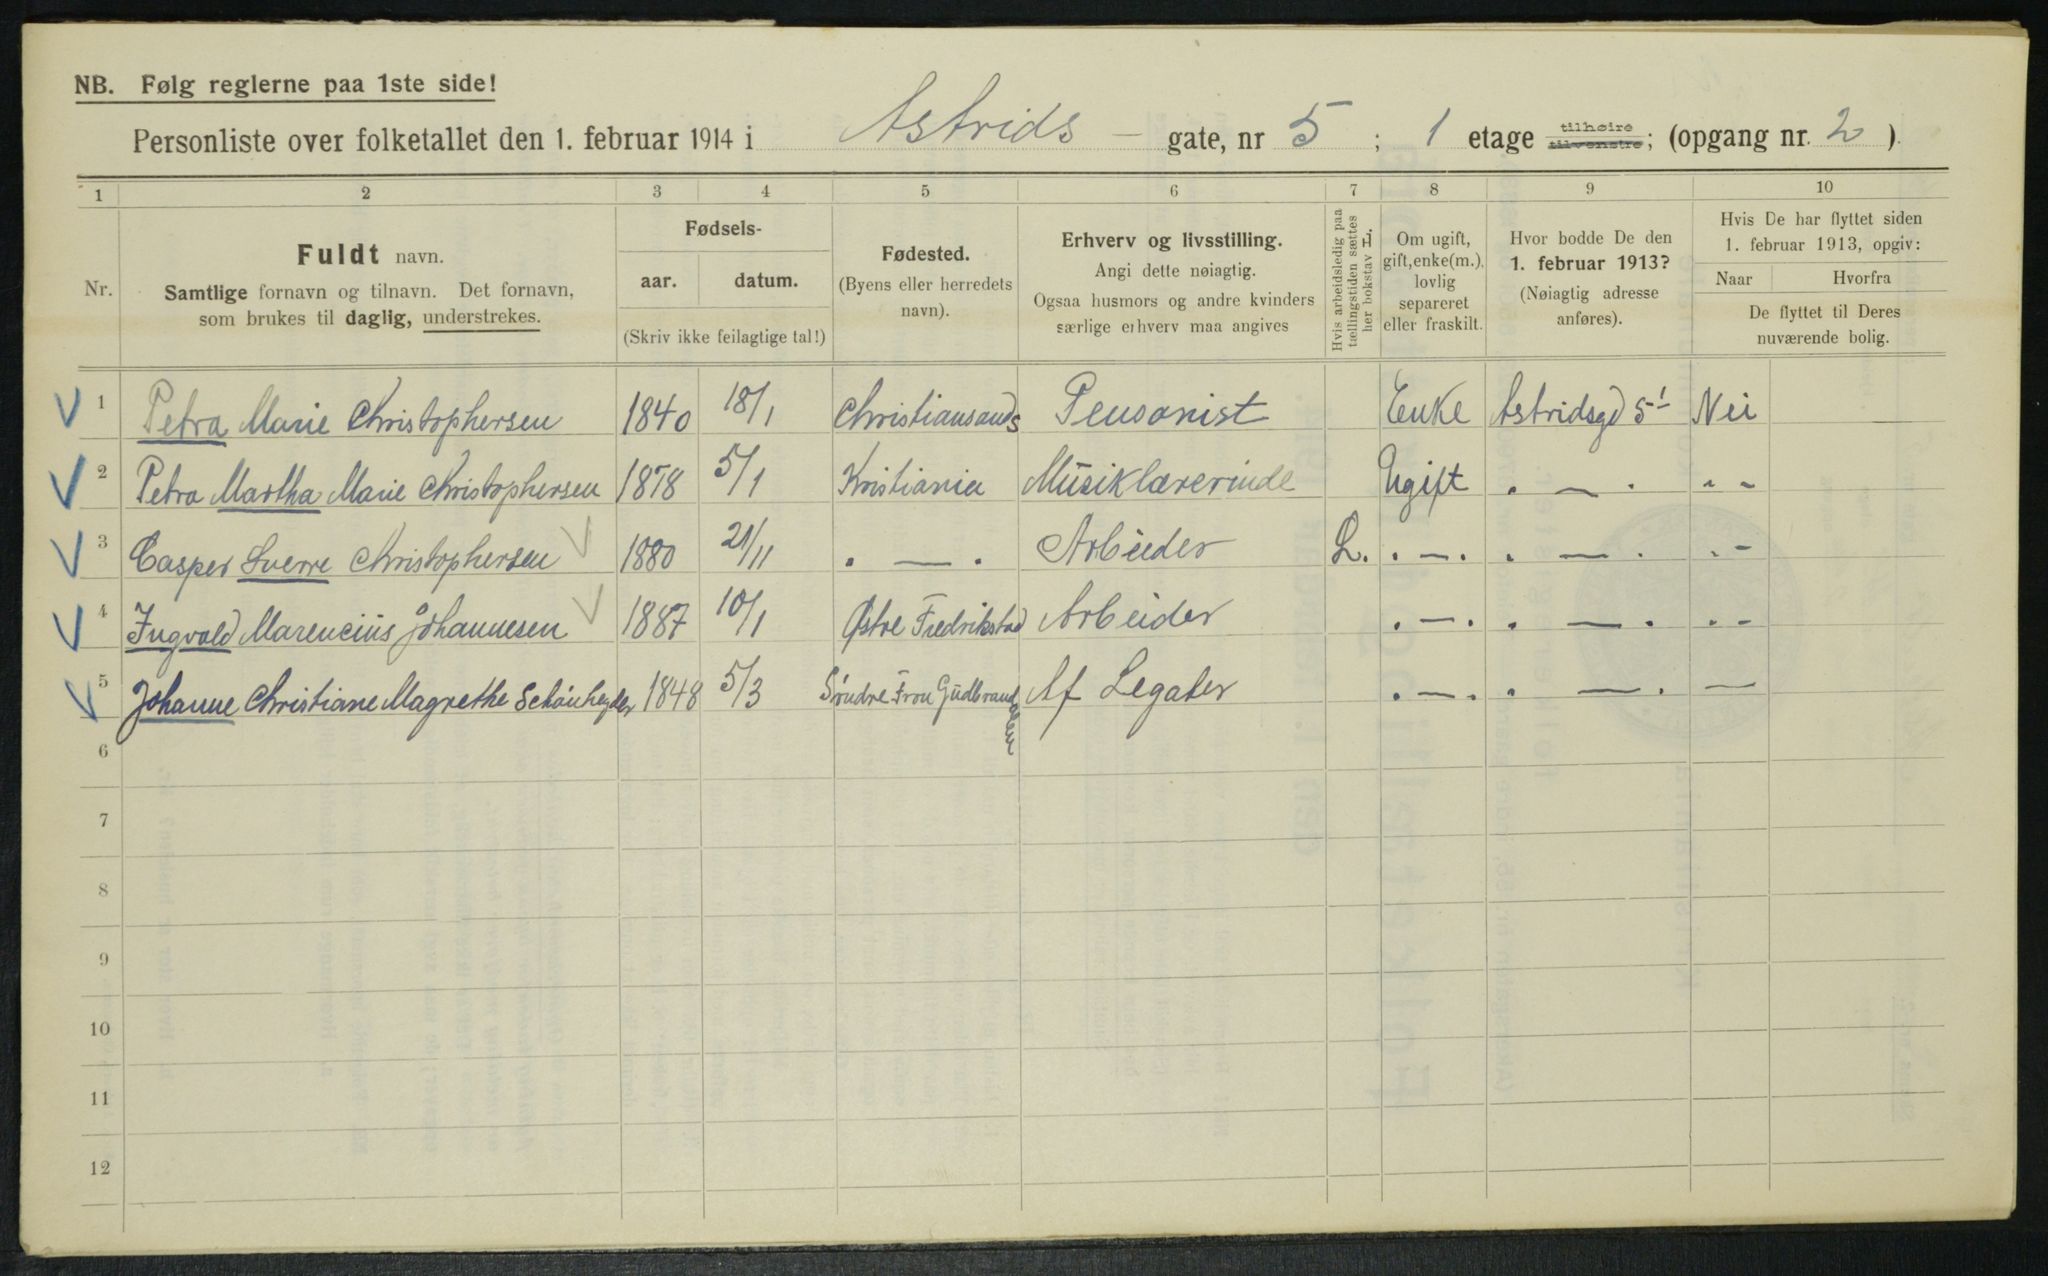 NB. Følg reglerne paa 1ste side!
Personliste over folketallet den 1. februar 1914 i Astrids - gate, nr 5 ; 1 etage tilhøire tilvenstre; (opgang nr. 2 ).
1 2 3 4 5 6 7 8 9 10
Nr.
Fuldt navn.
Samtlige fornavn og tilnavn. Det fornavn,
som brukes til daglig, understrekes.
Fødsels-
aar. datum.
(Skriv ikke feilagtige tal!)
Fødested.
(Byens eller herredets
navn).
Erhverv og livsstilling.
Angi dette nøiagtig.
Ogsaa husmors og andre kvinders
særlige erhverv maa angives
Hvis arbeidsledig paa
tællingstiden sættes
her bokstav L.
Om ugift,
gift, enke(m.),
lovlig
separeret
eller fraskilt.
Hvor bodde De den
1. februar 1913?
(Nøiagtig adresse
anføres).
Hvis De har flyttet siden
1. februar 1913, opgiv:
Naar Hvorfra
De flyttet til Deres
nuværende bolig.
1 Petra Marie Christophersen 1840 18/1 Christiansands Pensonist Enke Astridsgd 5 1 Nei
2 Petra Martha Marie Christophersen 1878 5/1 Kristiania Musiklærerinde Ugift . — . . -
3 Casper Sverre Christophersen 1880 21/11 . — . Arbeider L. . — . . — . . -
4 Ingvald Marencius Johannesen 1887 10/1 Østre Fredrikstad Arbeider . — . . — . . -
5 Johanne Christiane Magrethe Schönheyder 1848 5/3 Søndre Fron Gudbrandsdalen Af Legater . — . . — . —
6
7
8
9
10
11
12